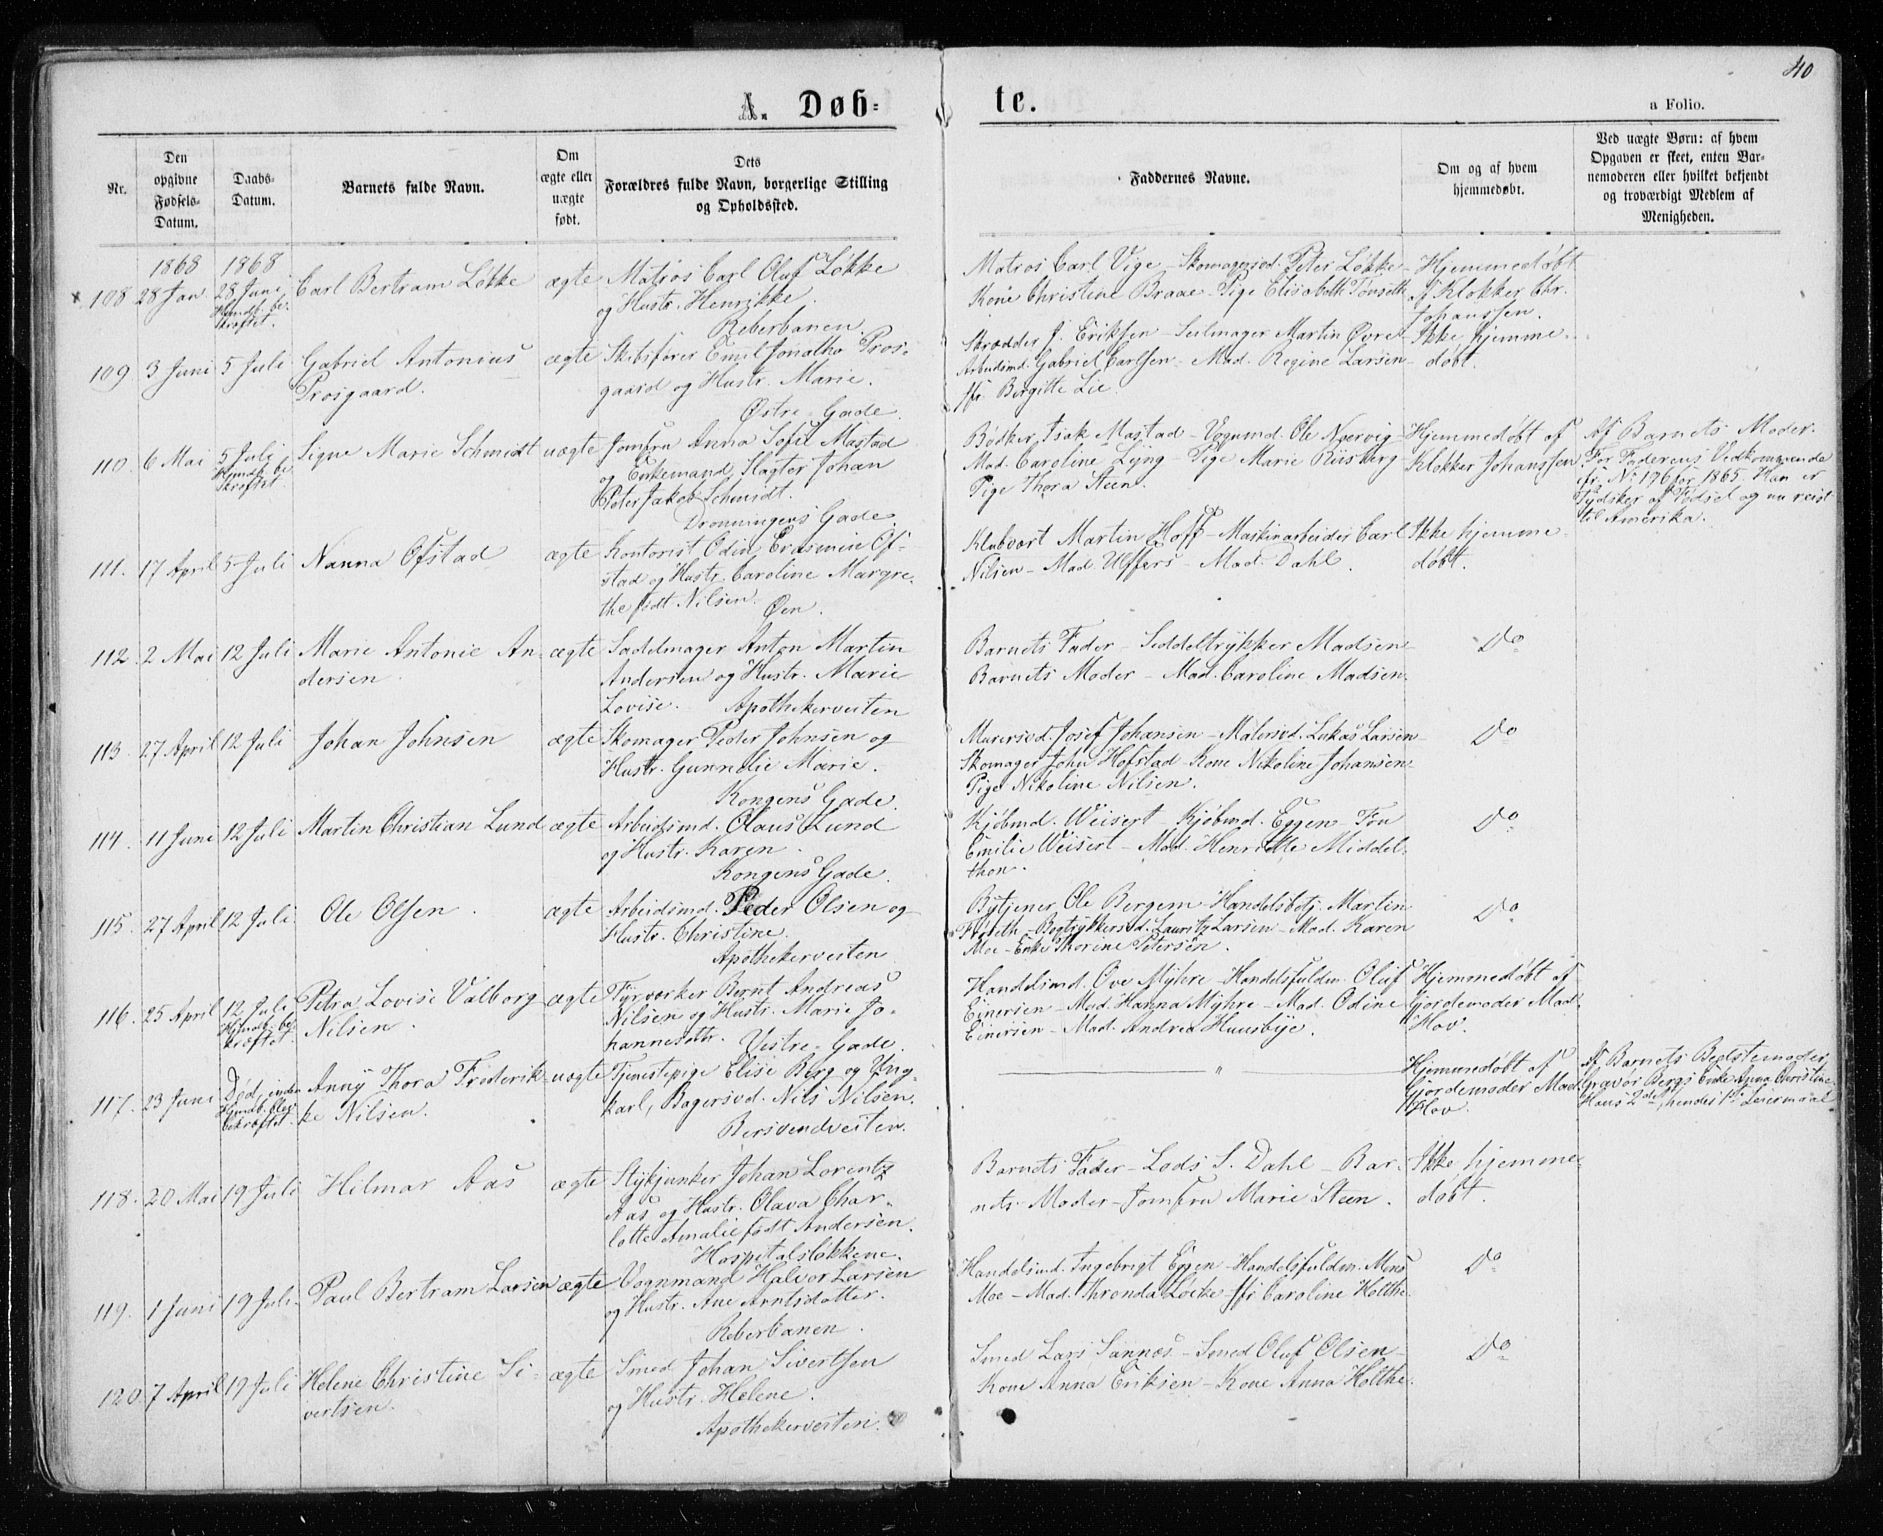 40
A. Døb=
te.
a Folio.
Nr.
Den opgivne Fødsels-Datum.
Daabs-Datum.
Barnets fulde Navn.
Om ægte eller uægte født.
Dets Forældres fulde Navn, borgerlige Stilling og Opholdssted.
Faddernes Navne.
Om og af hvem hjemmedøbt.
Ved uægte Børn: af hvem Opgaven er skeet, enten Barnemoderen eller hvilket bekjendt og troværdigt Medlem af Menigheden.
1868 1868
108 28 Jan. 28 Juni Hjmdb. be-
kræftet.
Carl Bertram Løkke
ægte
Matros Carl Oluf Løkke
og Hustr. Henrikke.
Reberbanen.
Matros Carl Vige - Skomagersvd. Peter Løkke -
Kone Christine Braae - Pige Elisabeth Tønseth
Hjemmedøbt
af Klokker Chr.
Johanssen.
109 3 Juni 5 Juli
Gabriel Antonius
Prosgaard.
ægte
Skibsfører Emil Jonatho Pros-
gaard og Hustr. Marie.
Østre-Gade.
Skrædder J. Eriksen - Seilmager Martin Øvre-
Arbeidsmd. Gabriel Carlsen - Mad. Regine Larsen -
Jfr. Bergitte Lie.
Ikke hjemme-
døbt.
110. 6 Mai 5 Juli
Hjmdb. be-
kræftet.
Signe Marie Schmidt
uægte
Jomfru Anna Sofie Mastad
og Enkemand, Slagter Johan
Peter Jakob Schmidt.
Dronningens Gade.
Bødker Isak Mastad - Vognmd. Ole Nærvig -
Mad. Caroline Lyng - Pige Marie Riisberg
Pige Thora Steen.
Hjemmedøbt af
Klokker Johanssen
Af Barnets Moder.
For Faderens Vedkommende
cfr. No 196 for 1865. Han er
Tydsker af Fødsel og nu reist
til Amerika.
111. 17 April 5 Juli
Nanna Ofstad
ægte
Kontorist Odin Erasmin Of-
stad og Hustr. Caroline Margre-
the født Nilsen.
Øen.
Klubvært Martin Hoff - Maskinarbeider Carl
Nilsen - Mad. Uffers - Mad. Dahl.
Ikke hjemme-
døbt.
112. 2 Mai 12 Juli
Marie Antonie An-
dersen.
ægte
Sadelmager Anton Martin
Andersen og Hustr. Marie
Lovise. Apothekerveiten
Barnets Fader - Seddeltrykker Madsen -
Barnets Moder - Mad. Caroline Madsen.
Do
113. 27 April 12 Juli
Johan Johnsen
ægte
Skomager Peder Johnsen og
Hustr. Gunnelie Marie.
Kongens Gade.
Murersvd. Josef Johansen - Malersvd. Lukas Larsen -
Skomager John Hofstad - Kone Nikoline Johansen -
Pige Nikoline Nilsen.
Do
114. 11 Juni 12 Juli
Martin Christian Lund
ægte
Arbeidsmd. Olaus Lund
og Hustr. Karen.
Kongens Gade.
Kjøbmd. Weisert - Kjøbmd. Eggen - Fru
Emilie Weisert - Mad. Henriette Middel-
thon.
Do
115. 27 April 12 Juli
Ole Olsen.
ægte
Arbeidsmd. Peder Olsen og
Hustr. Christine.
Apothekerveiten
Bytjener Ole Bergem - Handelsbetj. Martin
Frøseth - Bogtrykkersvd. Lauritz Larsen - Mad. Karen
Moe - Enke Thorine Petersen.
Do
116. 25 April 12 Juli
Hjmdb. be-
kræftet.
Petra Lovise Valborg
Nilsen.
ægte
Fyrværker Bernt Andreas
Nilsen og Hustr. Marie Jo-
hannesdttr. Vestre-Gade.
Handelsmd. Ove Myhre - Handelsfuldm. Oluf
Einersen - Mad. Hanna Myhre - Mad. Odine
Einersen - Mad. Andrea Huusbye.
Hjemmedøbt af
Gjordemoder Mad.
Hov.
117. 23 Juni
Død, inden
Hjmdb. blev
bekræftet.
Anny Thora Frederik-
ke Nilsen.
uægte
Tjenestepige Elise Berg og Ung-
karl, Bagersvd. Nils Nilsen.
Bersvendveiten.
"
Hjemmedøbt af
Gjordemoder Mad.
Hov.
Af Barnets Bedstemoder,
Graver Bergs Enke Anna Christine
Hans 2det, hendes 1ste Leiermaal
118. 20 Mai 19 Juli
Hilmar Aas
ægte
Stykjunker Johan Lorentz
Aas og Hustr. Olava Char-
lotte Amalie født Andersen.
Hospitalsløkkene.
Barnets Fader - Lods S. Dahl - Bar-
nets Moder - Jomfru Marie Steen.
Ikke hjemme-
døbt.
119. 1 Juni 19 Juli
Paul Bertram Larsen
ægte
Vognmand Halvor Larsen
og Hustr. Ane Arntsdatter.
Reberbanen.
Handelsmd. Ingebrigt Eggen - Handelsfuldm. Mens
Moe - Mad. Thronda Løcke - Jfr. Caroline Holthe.
Do
120. 7 April 19 Juli
Helene Christine Si-
vertsen.
ægte
Smed Johan Sivertsen
og Hustr. Helene.
Apothekerveiten.
Smed Lars Sannes - Smed Oluf Olsen -
Kone Anna Eriksen - Kone Anna Holthe.
Do